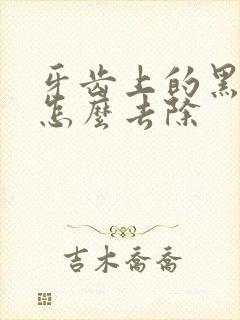 牙齿上的黑
怎麼去除
吉木喬喬